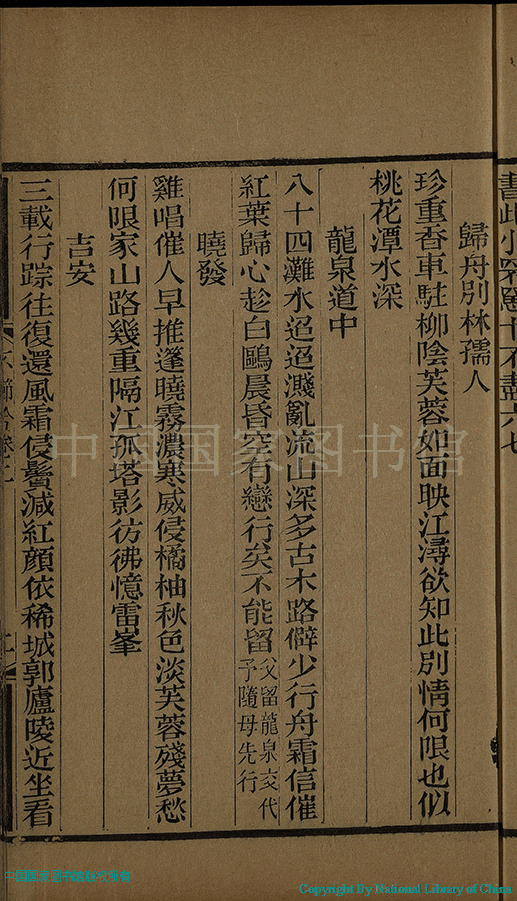 歸舟別林孺人
珍重香車駐柳陰芙蓉如面映江潯欲知此別情何限也似
桃花潭水深
龍泉道中
八十四灘水迢迢濺亂流山深多古木路僻少行舟霜信催
紅葉歸心趁白鷗晨昏空有戀行矣不能留父留龍泉交代予隨母先行
曉發
雞唱催人早推篷曉霧濃寒威侵橘柚秋色淡芙蓉殘夢愁
何限家山路幾重隔江孤塔影彷彿憶雷峯
吉安
三載行踪往復還風霜侵鬢減紅顏依稀城郭廬陵近坐看
中国国家图书馆
Copyright By National Library of China